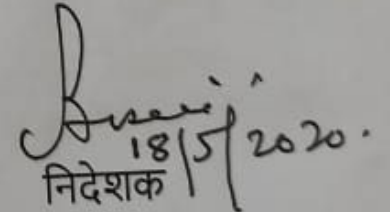 18/5/2020.
निदेशक